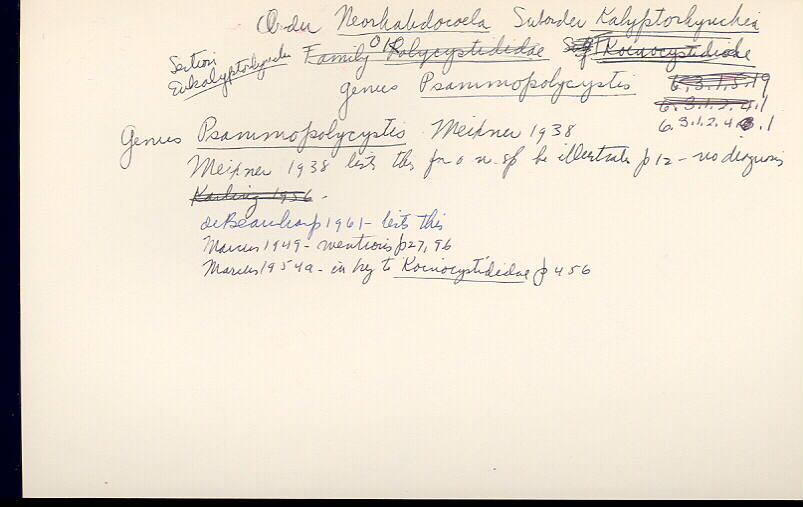 Order Neorhabdocoela Suborder Kalyptorhynchia
Section Eukalyptorhynchia Family OK Polycystididae Koinocystididae
genus Psammopolycystis 6.3.1.5.19
6.3.1.2.4.1
6.3.1.2.4.3.1
Genus Psammopolycystis Meixner 1938
Meixner 1938 lists this for a n. sp he illustrates p 12 - no diagnosis
Karling 1956 -
deBeauchamp 1961 - lists this
Marcus 1949 - mentions p27, 96
Marcus 1954a - in key to Koinocystididae p 456